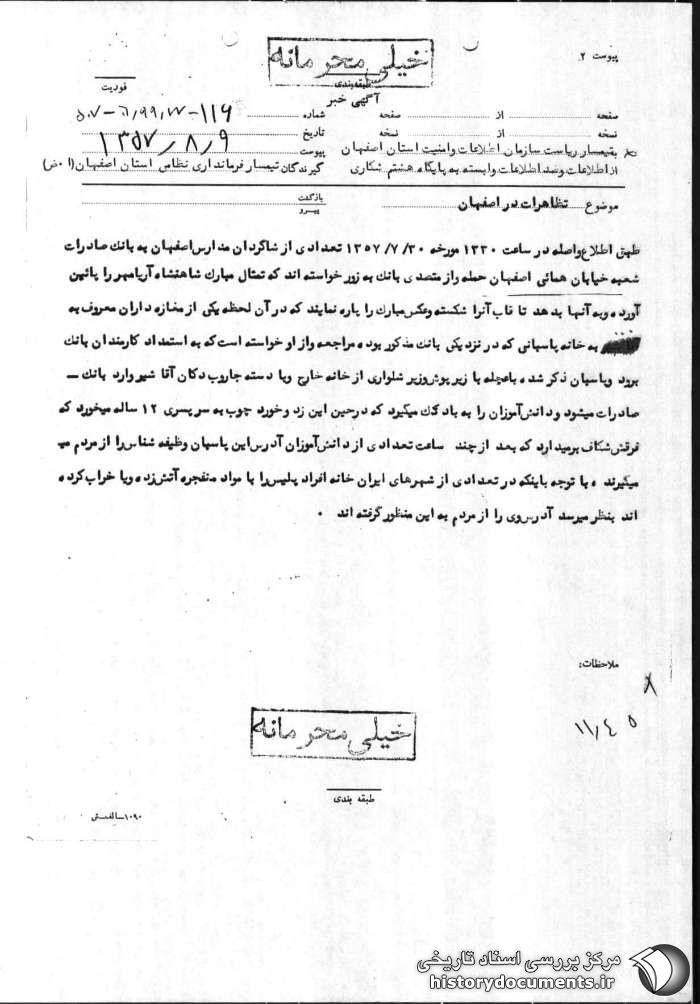 پیوست ۲
خیلی محرمانه
طبقه‌بندی
فوریت
آگهی خبر
صفحه از صفحه شماره
نسخه از نسخه تاریخ ۱۳۵۷/۸/۹
بتیمسار ریاست سازمان اطلاعات وامنیت استان اصفهان پیوست
از اطلاعات وضد اطلاعات وابسته به پایگاه هشتم شکاری گیرندگان تیمسار فرمانداری نظامی استان اصفهان
موضوع تظاهرات در اصفهان
بازگشت
پیرو
طبق اطلاع واصله در ساعت ۱۳۳۰ مورخه ۱۳۵۷/۷/۳۰ تعدادی از شاگردان مدارس اصفهان به بانک صادرات
شعبه خیابان همائی اصفهان حمله واز متصدی بانک به زور خواسته اند که تمثال مبارک شاهنشاه آریامهر را پائین
آورده وبه آنها بدهد تا قاب آنرا شکسته وعکس مبارک را پاره نمایند که در آن لحظه یکی از مغازه داران معروف به
به خانه پاسبانی که در نزدیکی بانک مذکور بوده مراجعه واز او خواسته است که به استمداد کارمندان بانک
برود وپاسبان ذکر شده باعجله با زیر پوش وزیر شلواری از خانه خارج وبا دسته جاروب دکان آقا شیر وارد بانک
صادرات میشود ودانش آموزان را به باد کتک میگیرد که درحین این زد وخورد چوب به سر پسری ۱۲ ساله میخورد که
فرقش شکاف برمیدارد که بعد از چند ساعت تعدادی از دانش آموزان آدرس این پاسبان وظیفه شناس را از مردم می
گیرند ، با توجه باینکه در تعدادی از شهرهای ایران خانه افراد پلیس را با مواد منفجره آتش زده ویا خراب کرده
اند بنظر میرسد آدرس وی را از مردم به این منظور گرفته اند .
ملاحظات:
۱۱/۴ ۵
خیلی محرمانه
طبقه بندی
مرکز بررسی اسناد تاریخی
historydocuments.ir